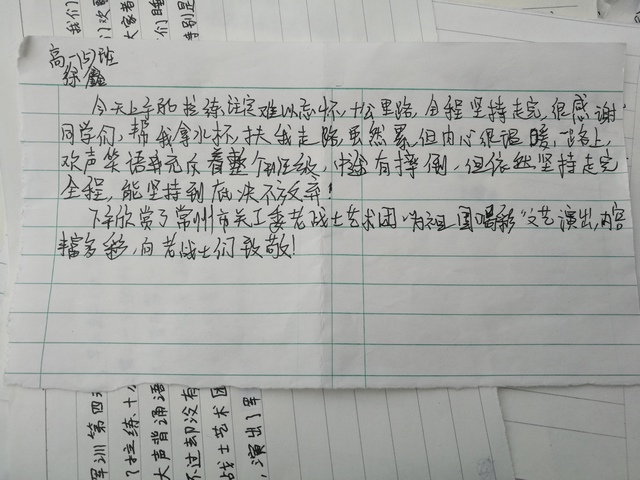 高一(5)班
徐鑫
今天上午的拉练注定难以忘怀,十公里路,全程坚持走完,很感谢
同学们,帮我拿水杯,扶我走路,虽然累,但内心很温暖,一路上,
欢声笑语弄充斥着整个班级,中途有摔倒,但依然坚持走完
全程,能坚持到底决不放弃!
下午欣赏了常州市关工委老战士艺术团“为祖国喝彩”文艺演出,内容
丰富多彩,向老战士们致敬!
我们
大家看
们睡
特别是
军训第四天
拉练,十
大声背诵语
不过却没有
战士艺术团
,演出了军